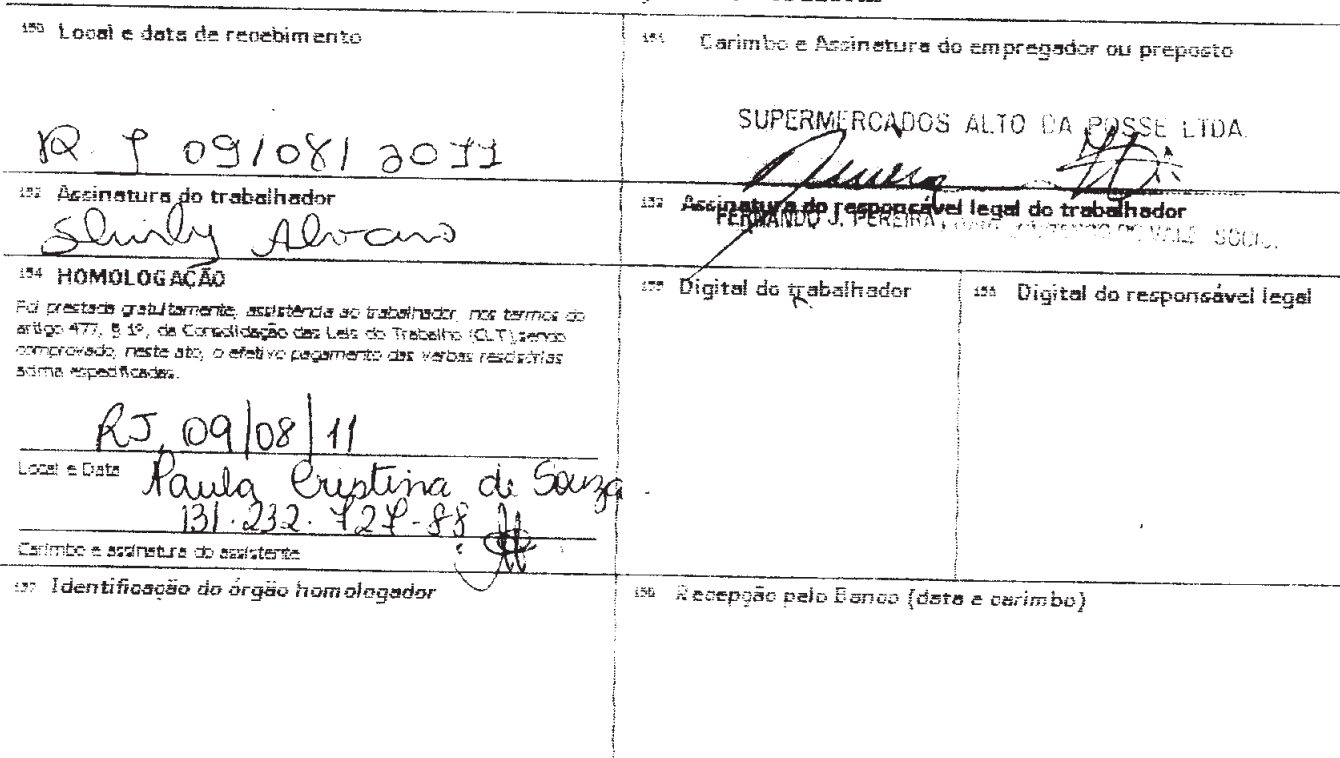 150 Local e data de recebimento
151 Carimbo e Assinatura do empregador ou preposto
SUPERMERCADOS ALTO DA POSSE LTDA.
R. J 09/08/2011
152 Assinatura do trabalhador
Shirly Alvaro
153 Assinatura do responsável legal do trabalhador
FERNANDO J. PEREIRA
SOCIO.
154 HOMOLOGAÇÃO
Foi prestada gratuitamente, assistência ao trabalhador, nos termos do
artigo 477, § 1º, da Consolidação das Leis do Trabalho (CLT), sendo
comprovado, neste ato, o efetivo pagamento das verbas rescisórias
acima especificadas.
RJ, 09/08/11
Local e Data
Paula Cristina de Souza
131.232.727-88
Carimbo e assinatura do assistente
155 Digital do trabalhador
156 Digital do responsável legal
157 Identificação do órgão homologador
158 Recepção pelo Banco (data e carimbo)